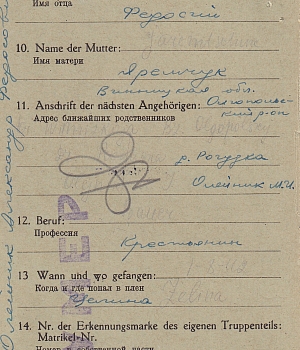 Имя отца
Федосий
10. Name der Mutter:
Имя матери
Яремчук
Винницкая обл.
11. Anschrift der nächsten Angehörigen: Ольгопольс-
Адрес ближайших родственников
кий р-он
д. Рогузка
Олейник М.И.
12. Beruf:
Профессия
Крестьянин
13 Wann und wo gefangen:
Когда и где попал в плен
14. Nr. der Erkennungsmarke des eigenen Truppenteils:
Matrikel-Nr.
Номер
собственной части
Олейник Александр Федосов